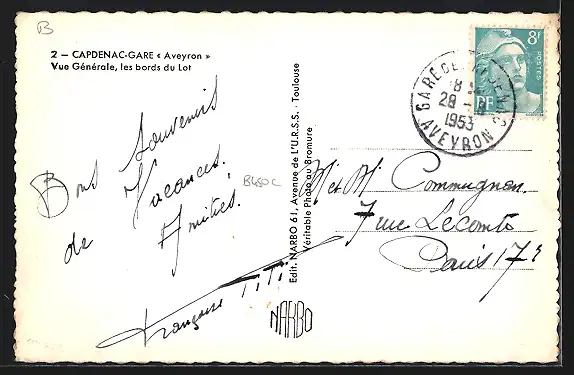 B
2 — CAPDENAC-GARE « Aveyron »
Vue Générale, les bords du Lot
Bons souvenirs
de Vacances.
Amitiés.
Françoise TiTi
B450C
Edit. NARBO 61, Avenue de L'U.R.S.S. - Toulouse
Véritable Photo au Bromure
NARBO
8f
POSTES
RF
GARE DE CAPDENAC
18
28 -
1953
AVEYRON
M et M Commugnon
7 rue Lecomte
Paris 17e